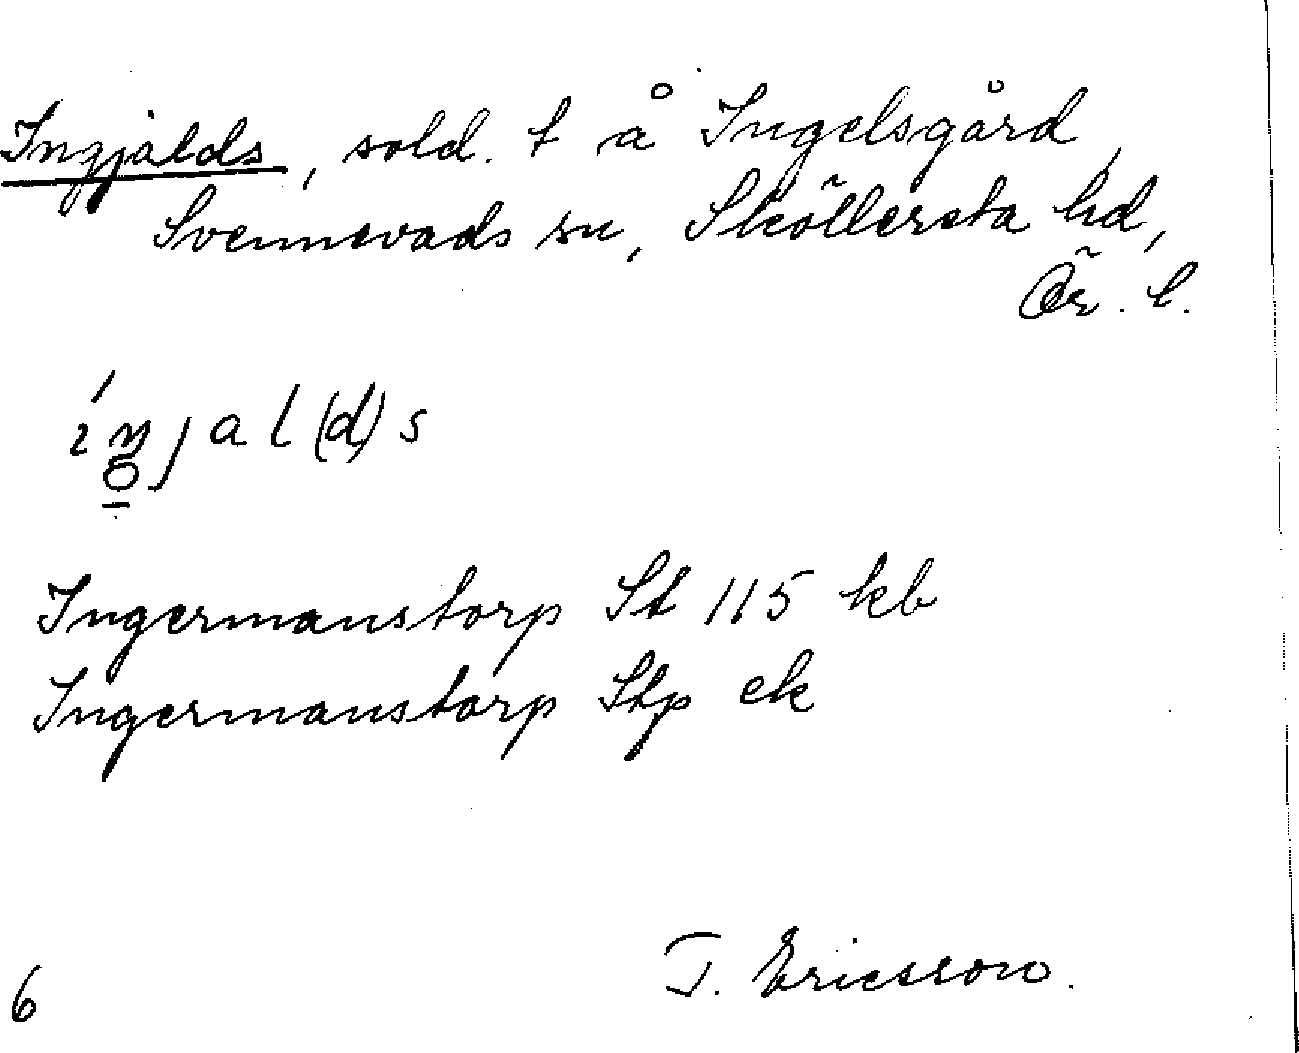 Ingjalds, sold. t å Ingelsgård,
Svennevads sn, Sköllersta hd,
Ör. l.
íŋjal(d)s
Ingermanstorp St 115 kb
Ingermanstorp Stp ek
6
T. Ericsson.